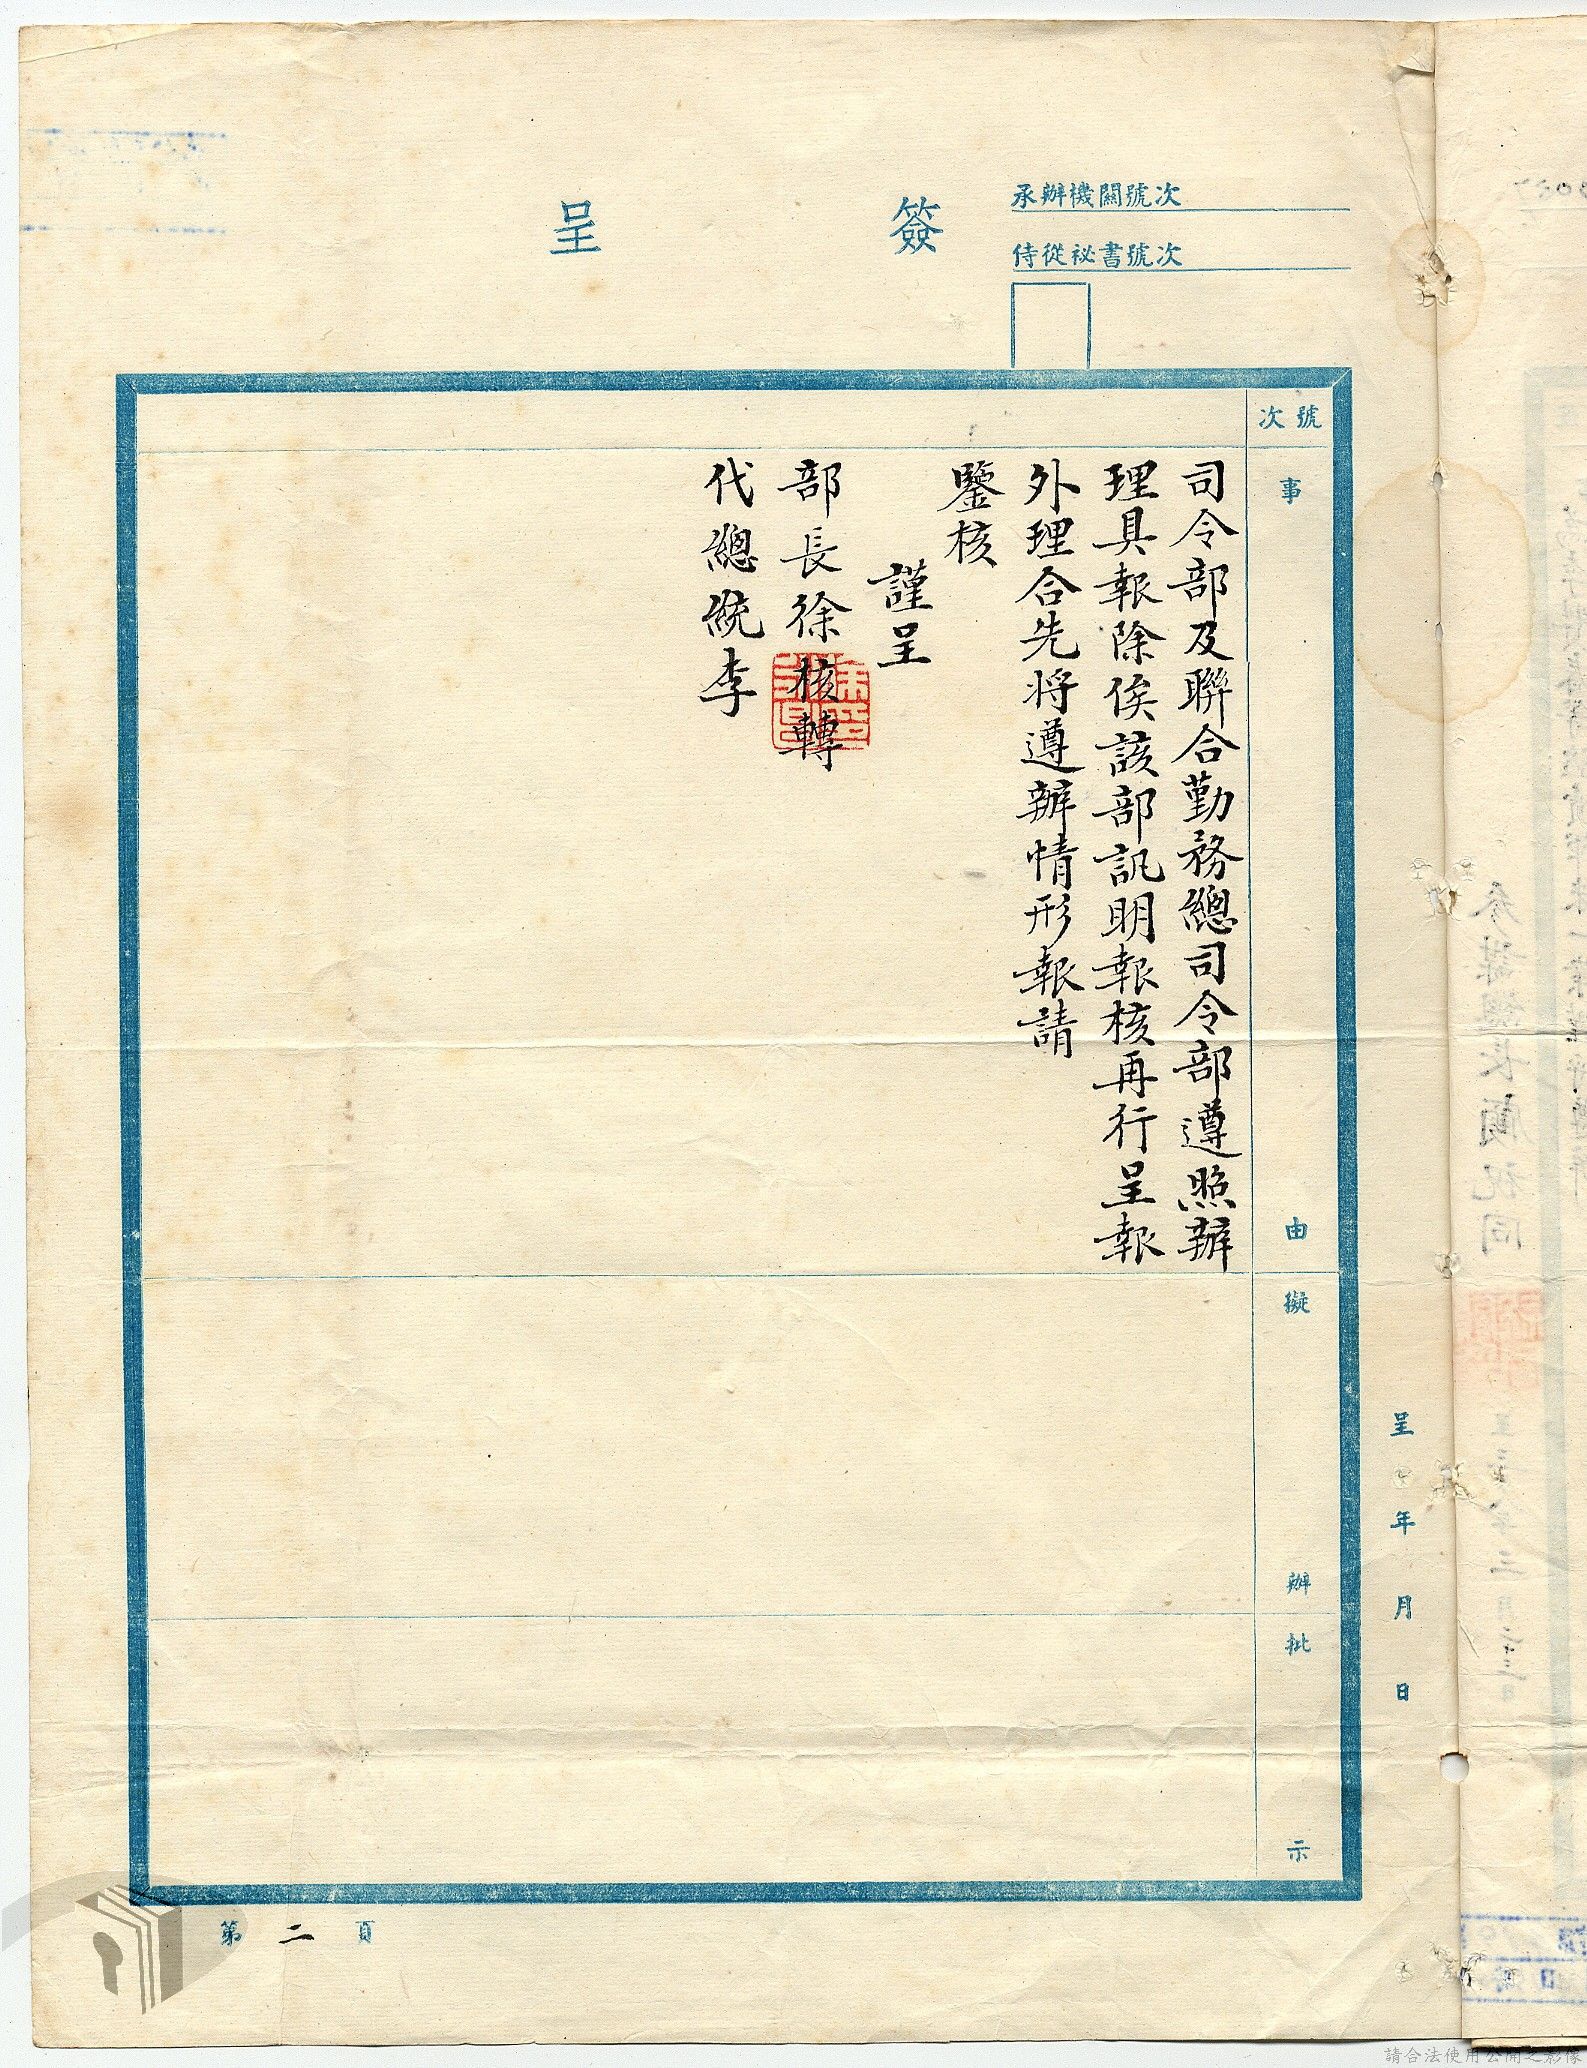 承辦機關號次
侍從祕書號次
簽呈
號次
事由
擬辦
批示
司令部及聯合勤務總司令部遵照辦
理具報除俟該部訊明報核再行呈報
外理合先將遵辦情形報請
鑒核
謹呈
部長徐核轉
代總統李
呈 年 月 日
第二頁
參謀總長顧祝同
請合法使用公開之影像